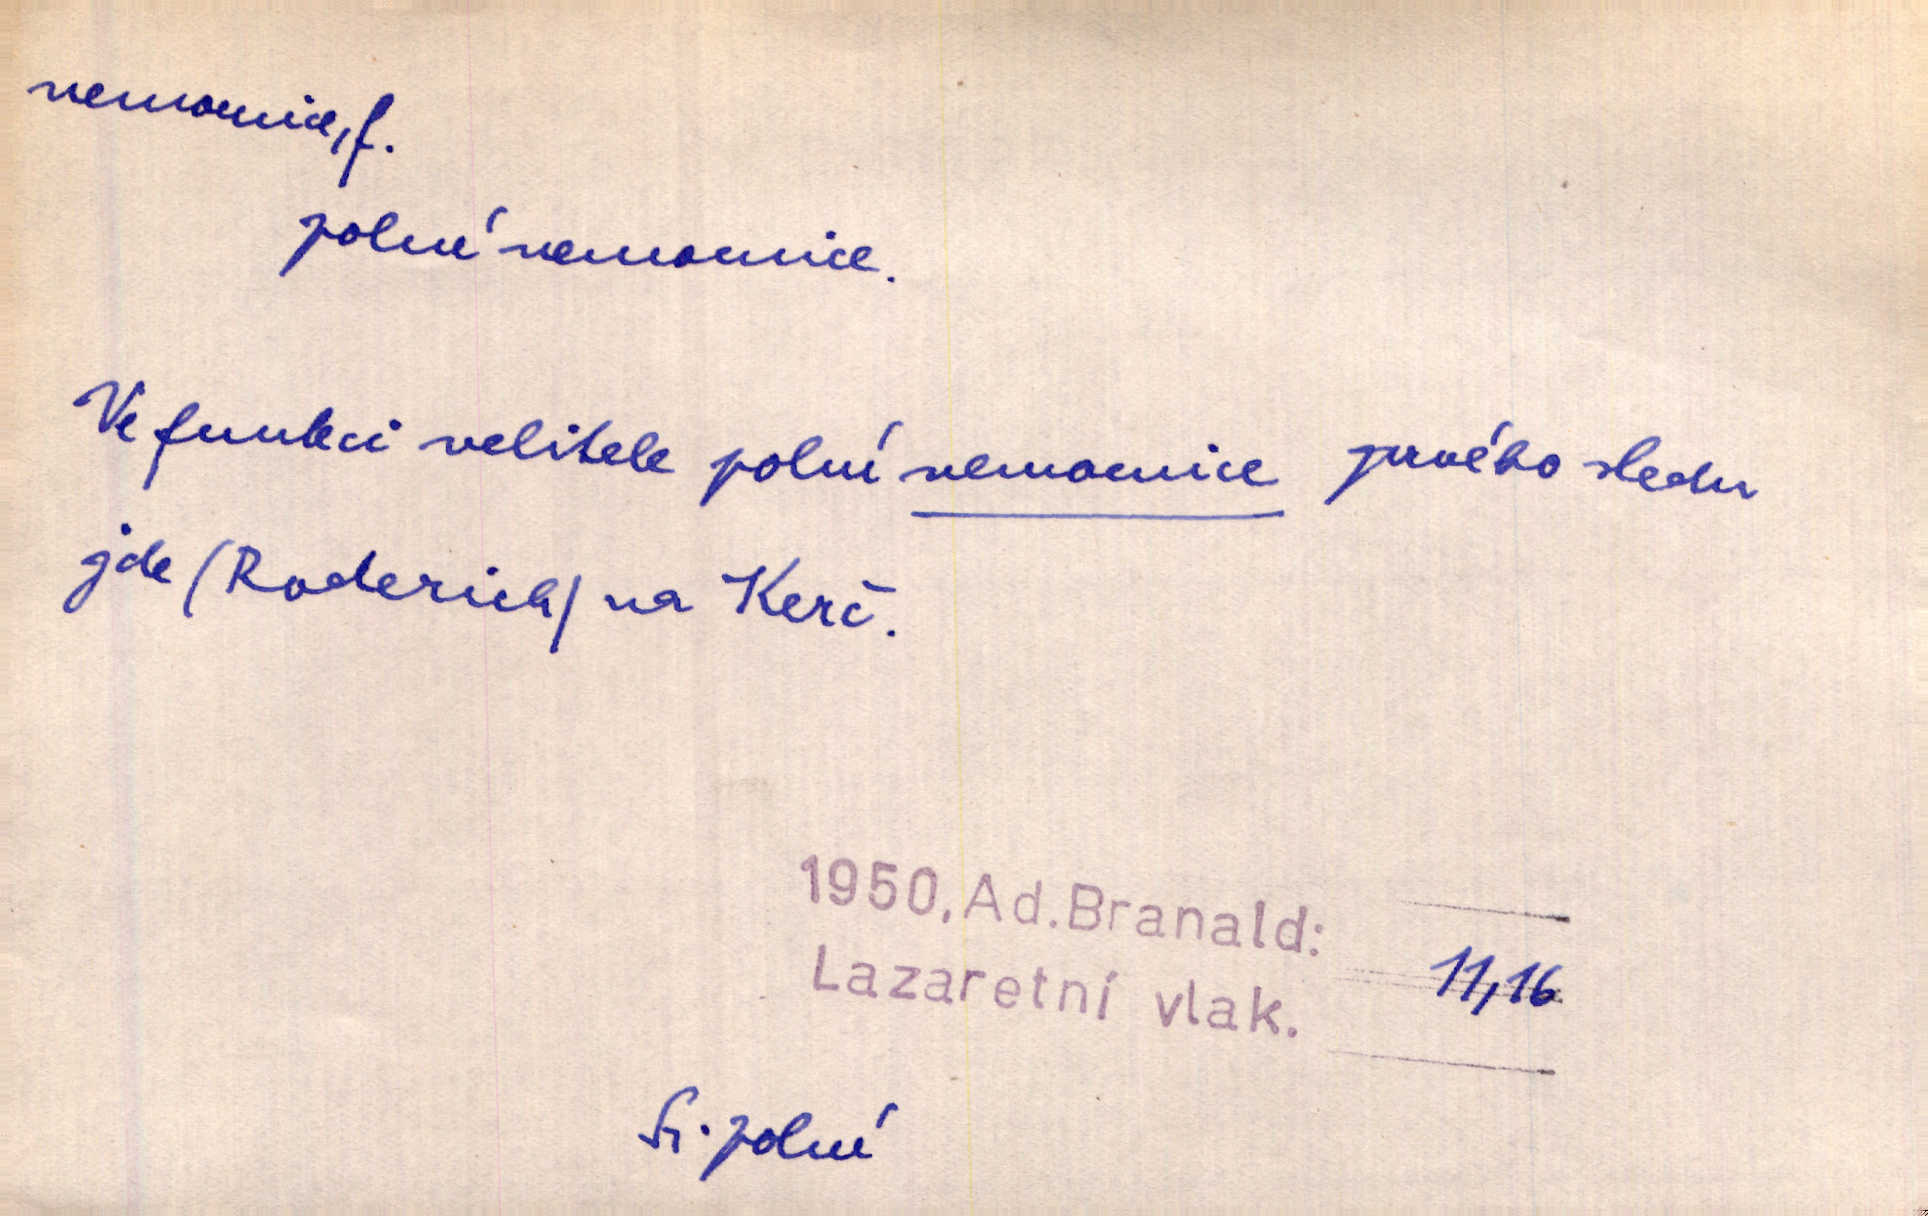 nemocnice, f.
polní nemocnice.
Ve funkci velitele polní nemocnice prvého sledu
jde (Roderich) na Kerč.
1950, Ad. Branald:
Lazaretní vlak. 11,16
Sr. polní